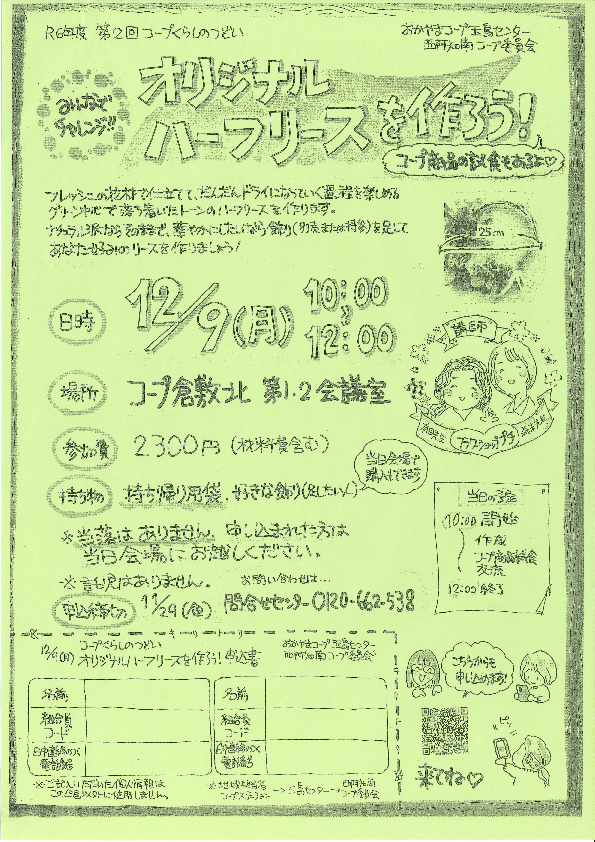 R6年度 第2回 コープくらしのつどい
おかやまコープ玉島センター
コープ委員会
みんなで
チャレンジ!!
オリジナル
ハーフリースを作ろう!
コープ商品の試食もあるよ♡
フレッシュの花材で仕立てて、だんだんドライになっていく過程を楽しめる
グリーン中心で落ち着いたトーンのハーフリースを作ります。
ナチュラル派ならそのままで、華やかにしたいなら飾り(別売または持参)を足して
あなた好みのリースを作りましょう!
25cm
日時
12/9(月) 10:00
12:00
講師
フラワーショップ
場所
コープ倉敷北 第1.2会議室
参加費
2.300円(材料費含む)
当日会場で
購入もできます
持ち物
持ち帰り用袋、好きな飾り(足したい人)
当日の予定
10:00 開始
作成
コープ商品試食
交流
12:00 終了
※当落はありません。申し込まれた方は
当日会場にお越しください。
※託児はありません。
お問い合わせは…
申込締切 11/29(金) 問合せセンター 0120-662-538
キリトリ
12/9(月)
コープくらしのつどい
オリジナルハーフリースを作ろう!申込書
おかやまコープ玉島センター
コープ委員会
名前
名前
組合員
コード
組合員
コード
日中連絡のつく
電話番号
日中連絡のつく
電話番号
※ご記入いただいた個人情報は
この企画以外には使用しません。
玉島センター
コープ委員会
こちらからも
申し込めます!
ピッ
来てね♡